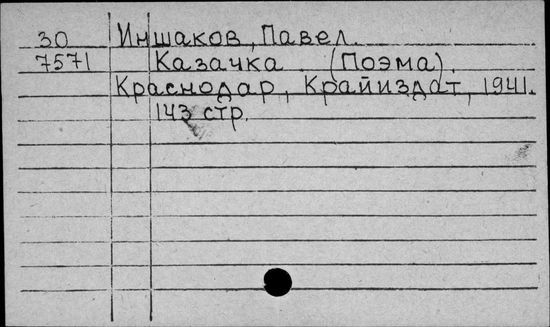 30 Иншаков, Павел.
7571 Казачка. (Поэма).
Краснодар, Крайиздат, 1941.
143 стр.